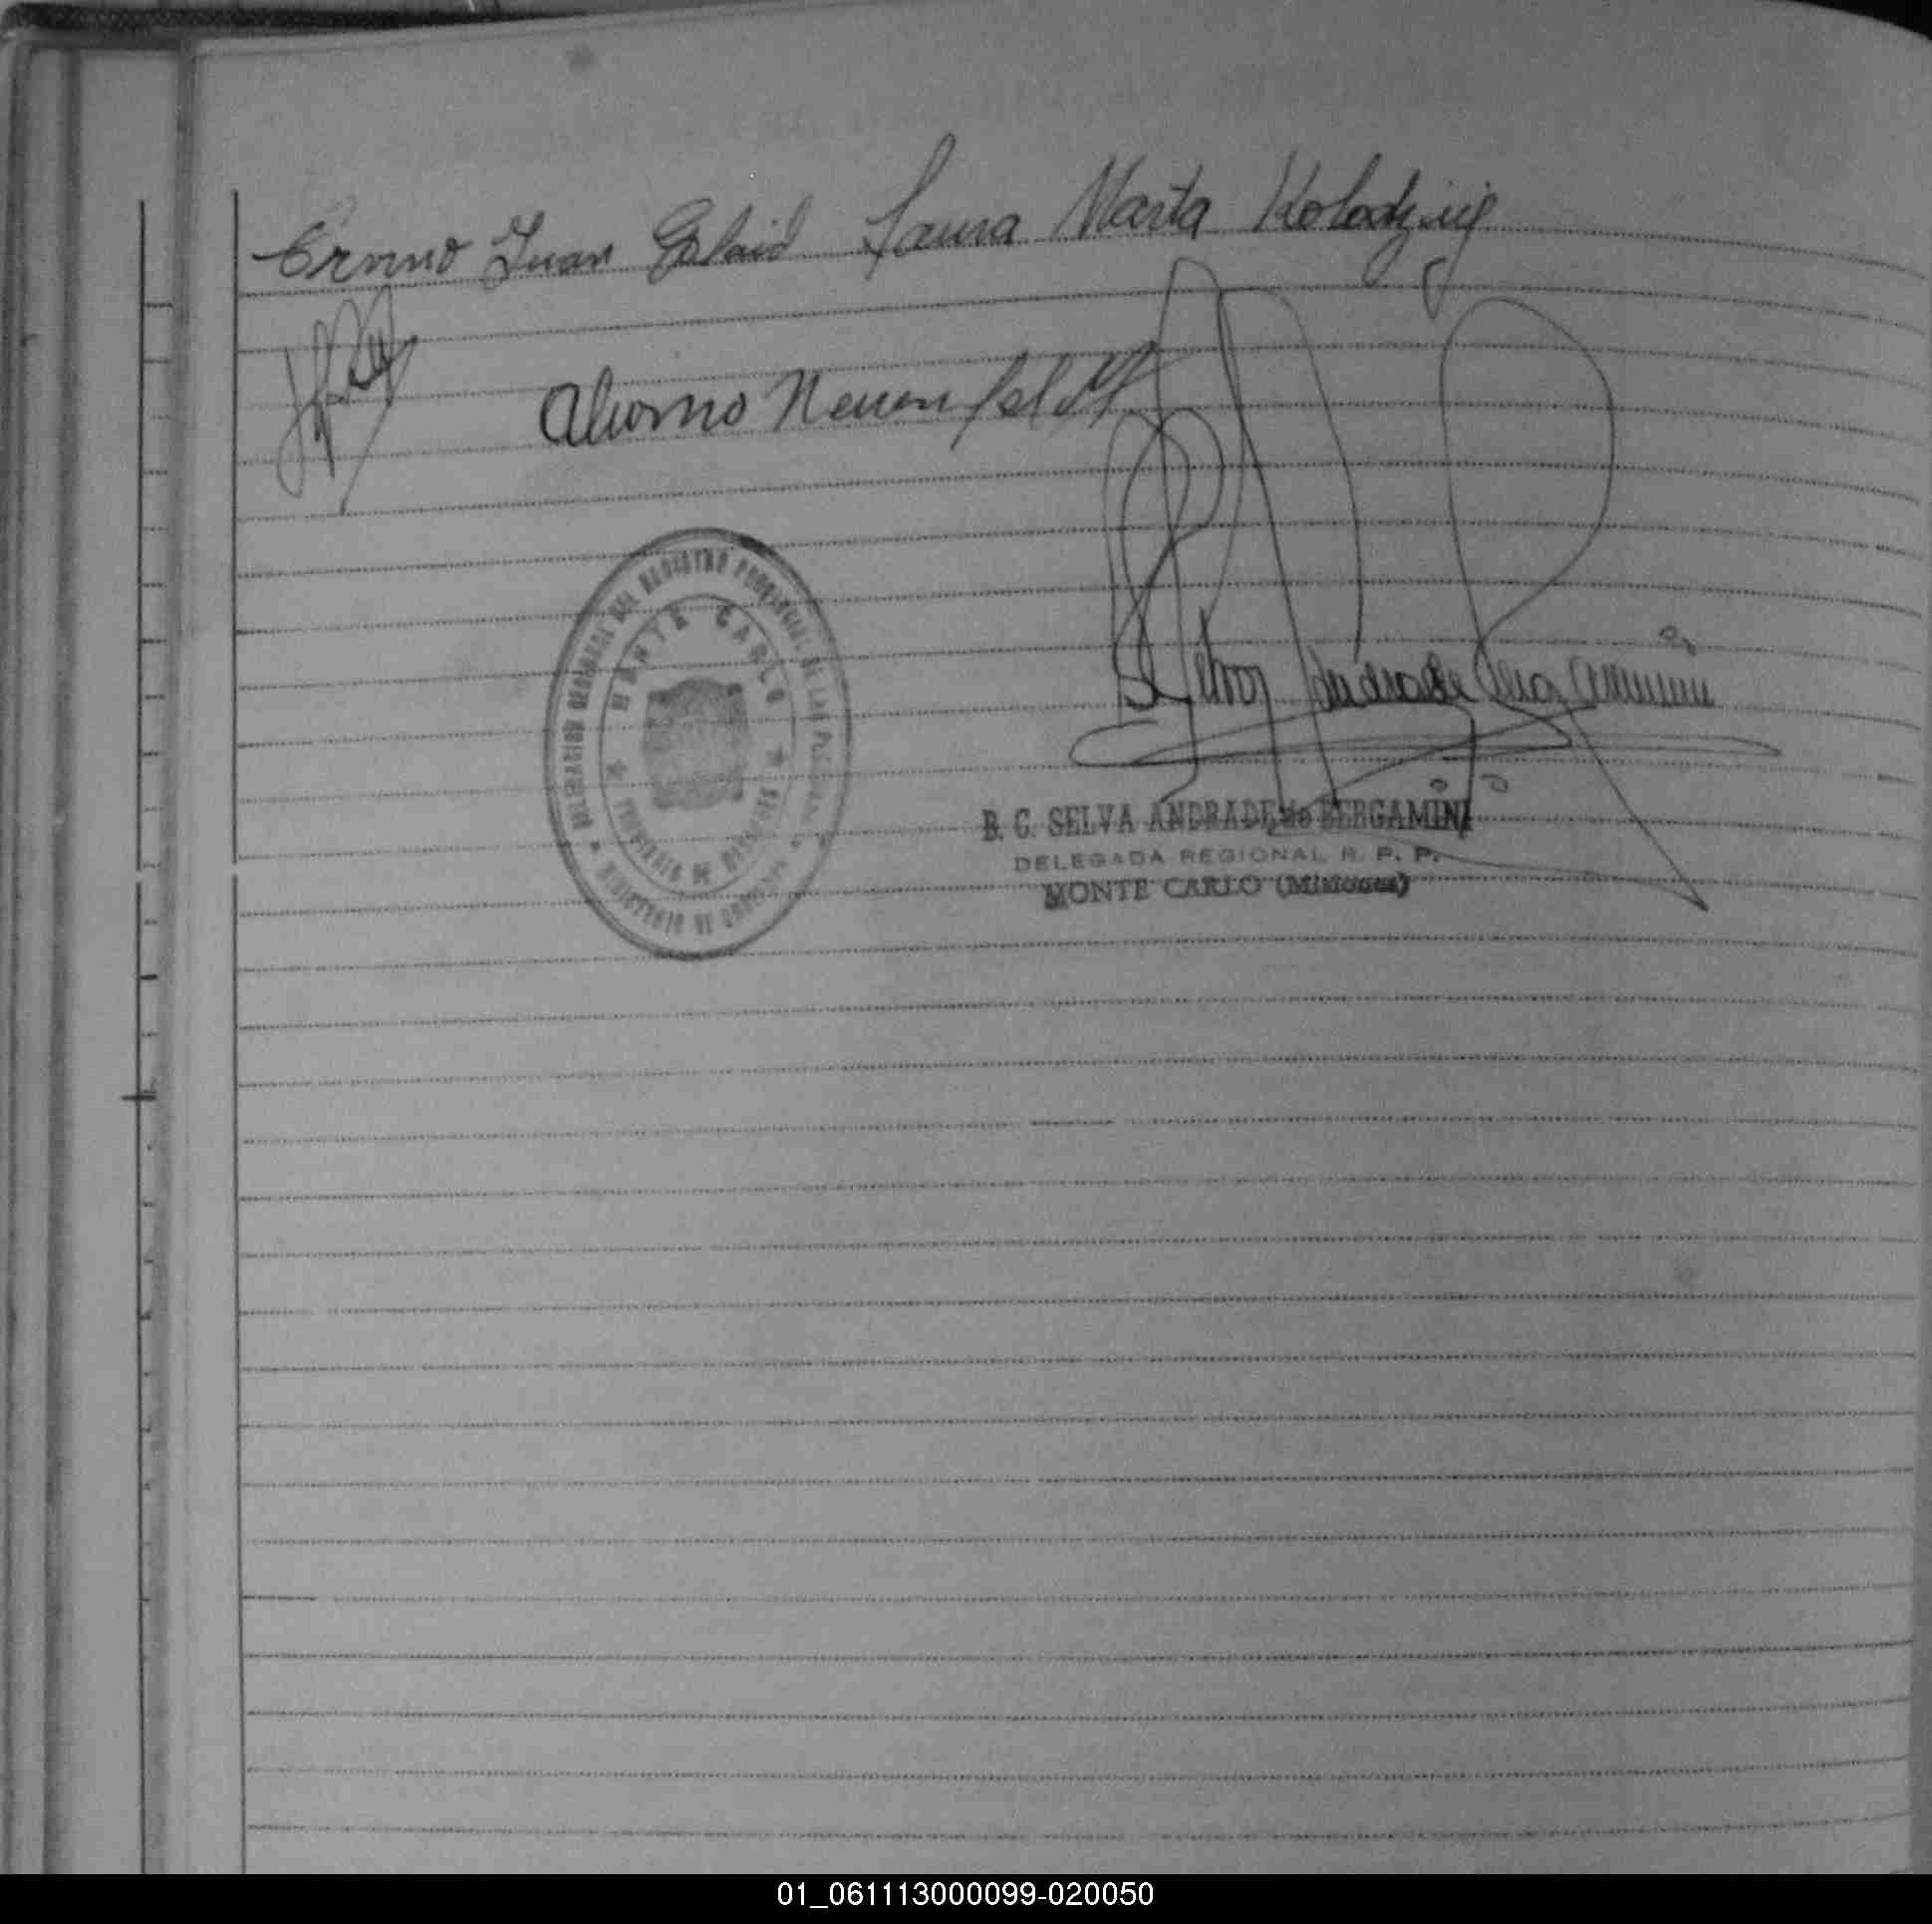 Juan Laura Marta Kolodziej
Neuenfeldt
DELEGACION REGIONAL DEL REGISTRO PROVINCIAL DE LAS PERSONAS
MONTE CARLO
PROVINCIA DE MISIONES
MINISTERIO DE GOBIERNO
Selva Andrade Bergamini
B. C. SELVA ANDRADE de BERGAMINI
DELEGADA REGIONAL R. P. P.
MONTE CARLO (Misiones)
01_061113000099-020050